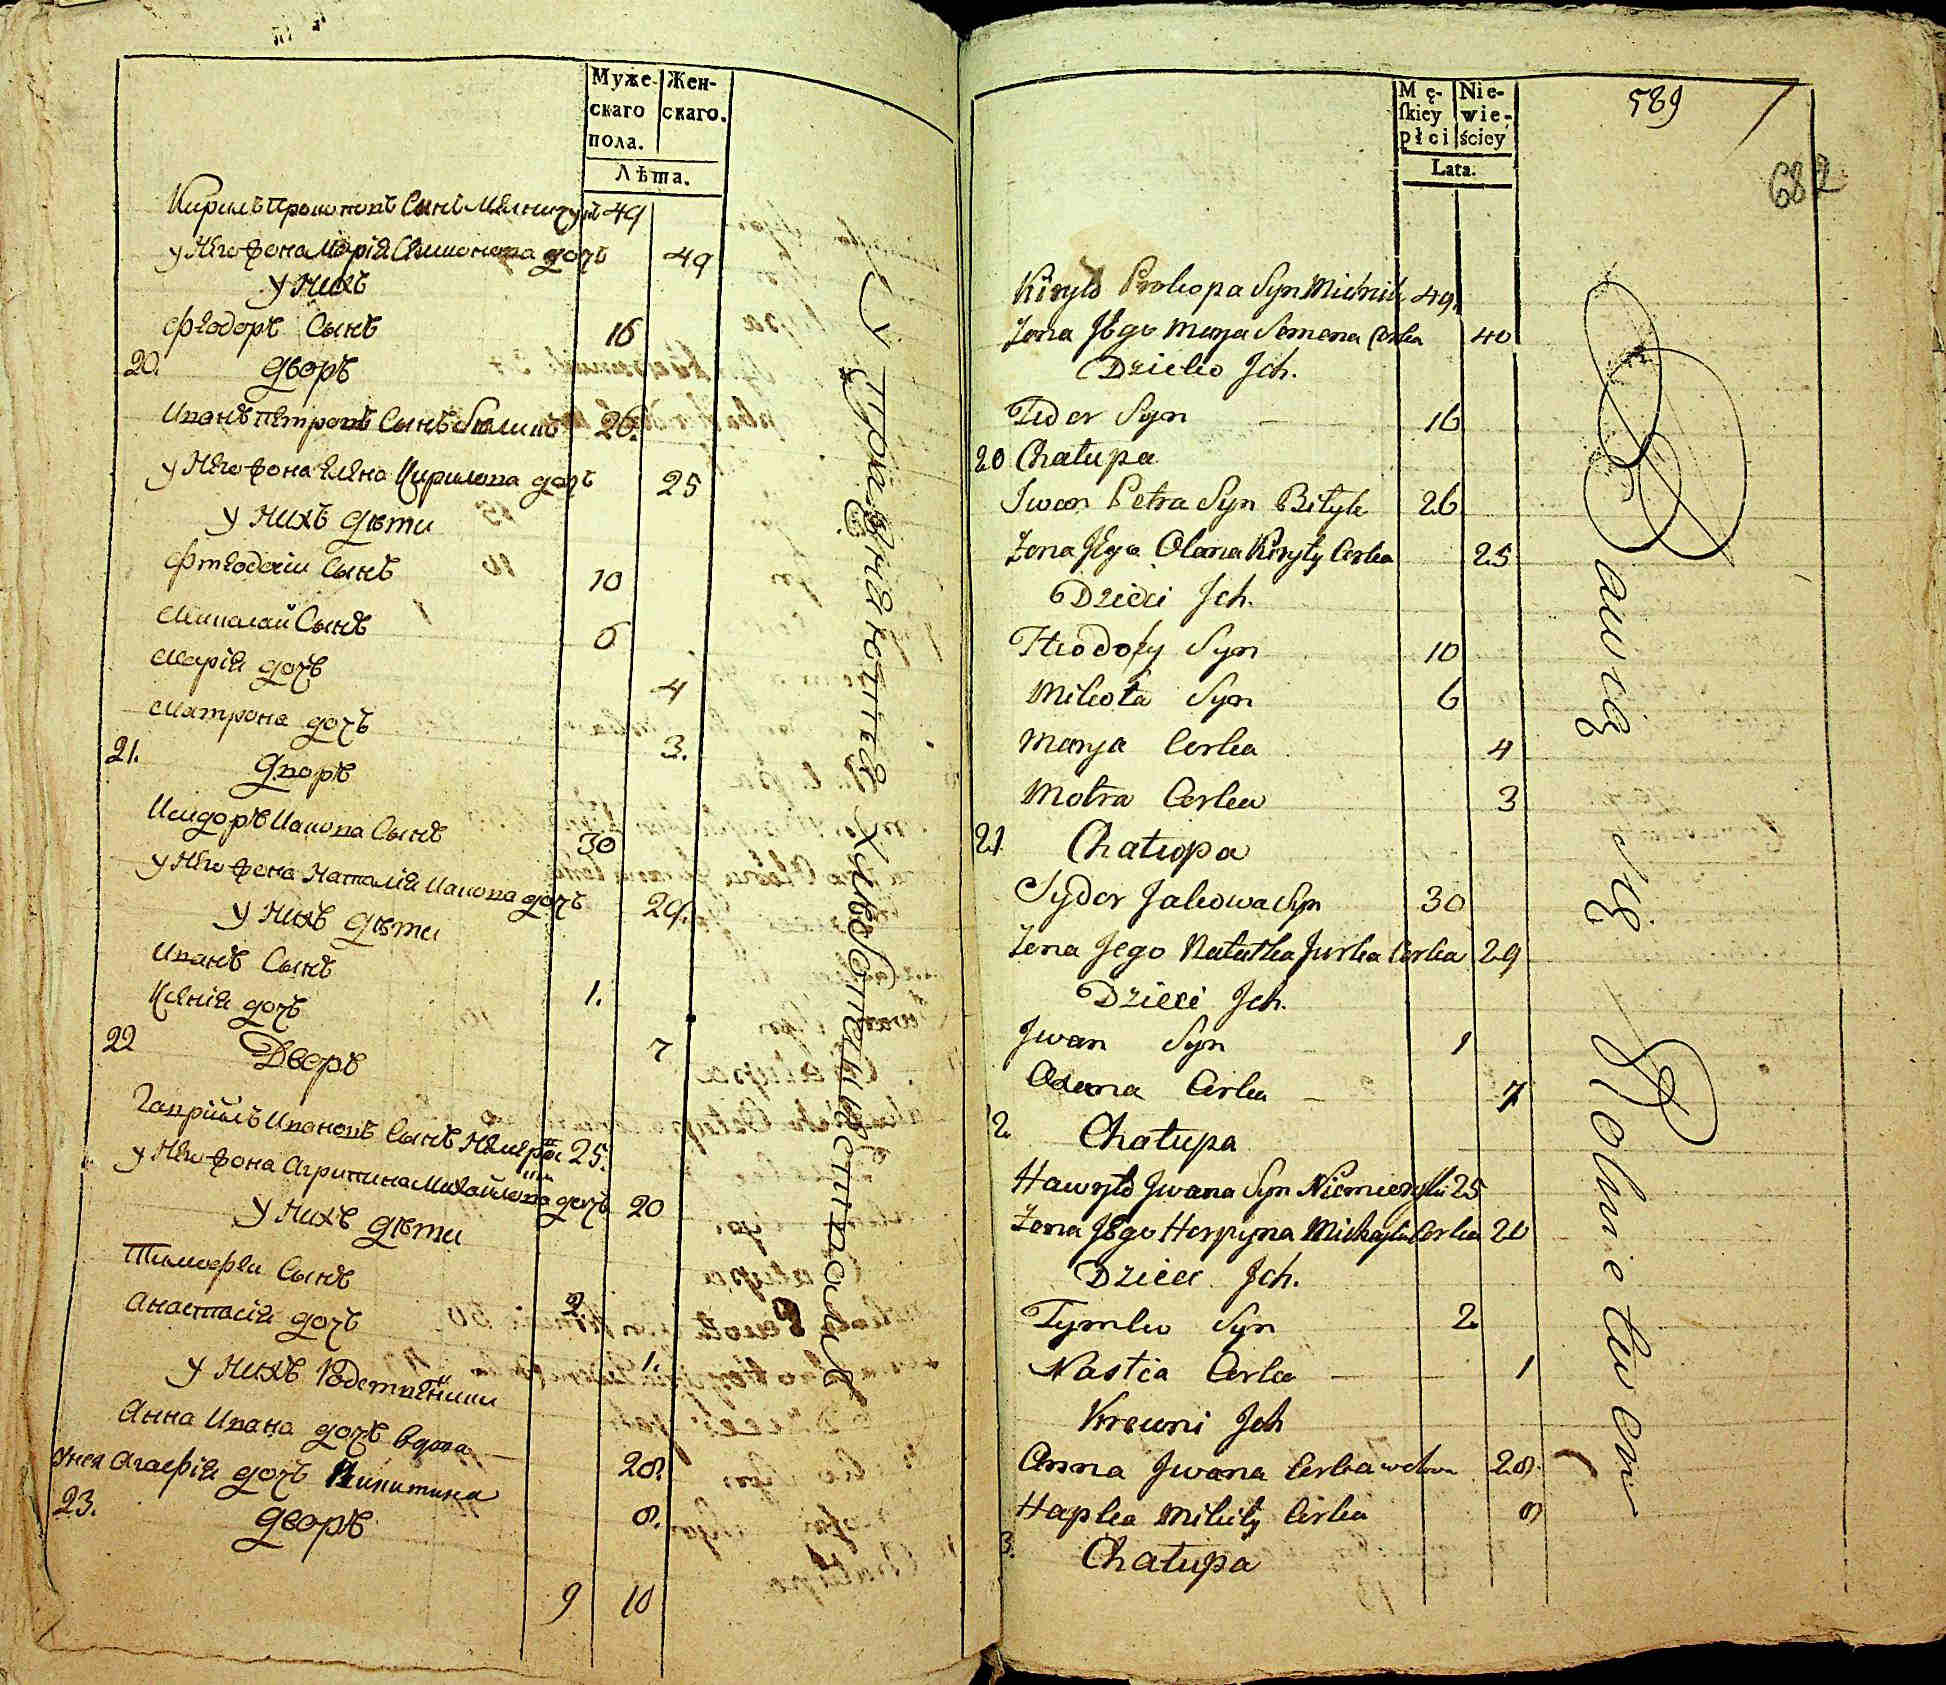 Муже-
скаго
пола.
Жен-
скаго.
Лѣта.
Кирилъ Прокоповъ Сынъ 49
у Него жона Марія Семионова дочь 49
у Нихъ
Феодоръ Сынъ 16
20. Дворъ
Иванъ Петровъ Сынъ 26.
у Него жона Елена Кирилова дочь 25
у Нихъ дѣти
Феодосіи Сынъ 10
Николай Сынъ 6
Марія дочь 4
Матрона дочь 3.
21. Дворъ
Исидоръ Иакова Сынъ 30
у Него жона Наталія Иакова дочь 29.
у Нихъ дѣти
Иванъ Сынъ 1.
Ксенія дочь 7
22 Дворъ
Гавріилъ Ивановъ Сынъ 25.
у Него жона Агрипина Михайлова дочь 20
у Нихъ дѣти
Тимофеи Сынъ 2
Анастасія дочь 1.
у Нихъ
Анна Ивана дочь вдова 28.
унея Агафія дочь Никитина 8.
23. Дворъ
9 10
Упражняются Хлебопашествомъ
Mę-
ſkiey
płci
Nie-
wie-
ściey
Lata.
589
682
Kiryło Prokopa Syn Mielnik 49
Zona Jego Marya Semena Corka 40
Dziecko Jch.
Fedor Syn 16
20 Chałupa
Jwan Petra Syn Bityk 26
Zona Jego Olana Kiryły Corka 25
Dzieci Jch.
Hteodosy Syn 10
Mikoła Syn 6
Marya Corka 4
Motra Corka 3
21 Chałupa
Sydor Jakowa Syn 30
Zona Jego Natałka Jurka Corka 29
Dzieci Jch.
Jwan Syn 1
Oxena Corka 7
2. Chałupa
Hawryło Jwana Syn 25
Zona Jego Horpyna Michayła Corka 20
Dzieci Jch.
Tymko Syn 2
Nastia Corka 1
Krewni Jch
Anna Jwana Corka wdowa 28
Hapka Mikity Corka 8
3. Chałupa
Bawią się Rolnictwem